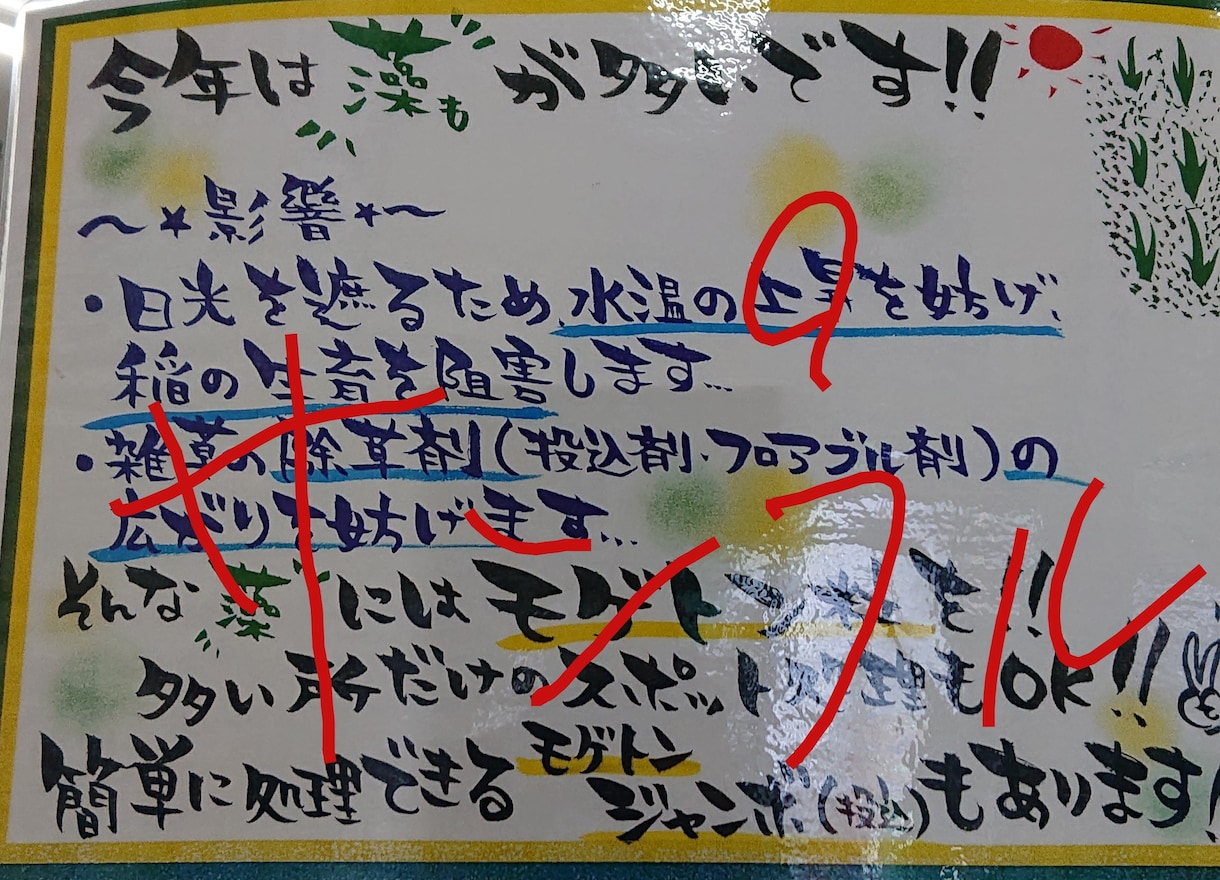 今年は藻もが多いです!!
～*影響*～
・日光を遮るため、水温の上昇を妨げ、
稲の生育を阻害します…
・雑草の除草剤(投込剤・フロアブル剤)の
広がりを妨げます…
そんな藻にはモゲトン粒を!!
多い所だけのスポット処理もOK!!
簡単に処理できるモゲトン
ジャンボ(投込)もあります!
サンプル